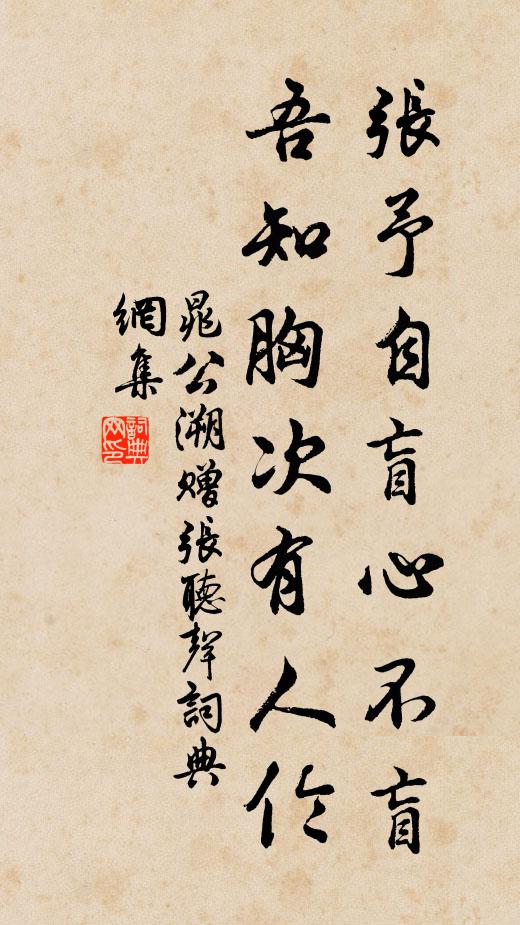 張予自盲心不盲
吾知胸次有人伦
晁公溯贈張聽聲詞典
網集
詞典
网印